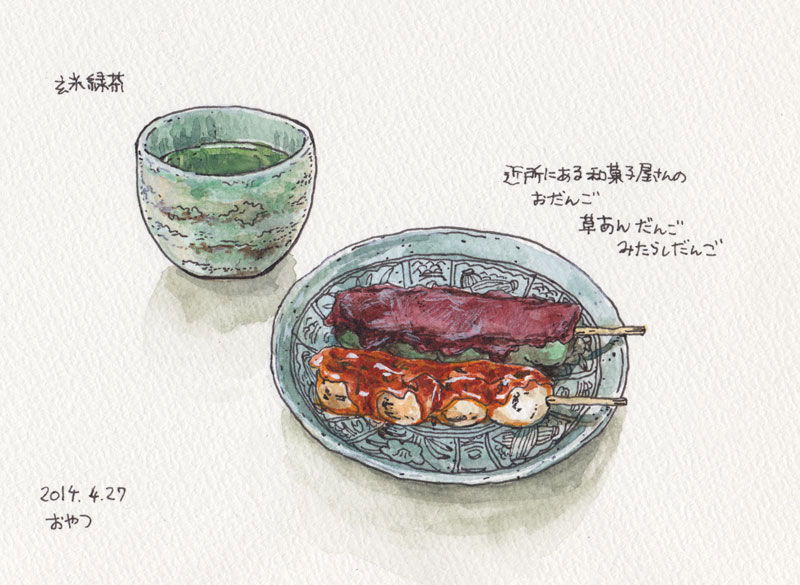 玄米緑茶
近所にある和菓子屋さんの
おだんご
草あんだんご
みたらしだんご
2014.4.27
おやつ